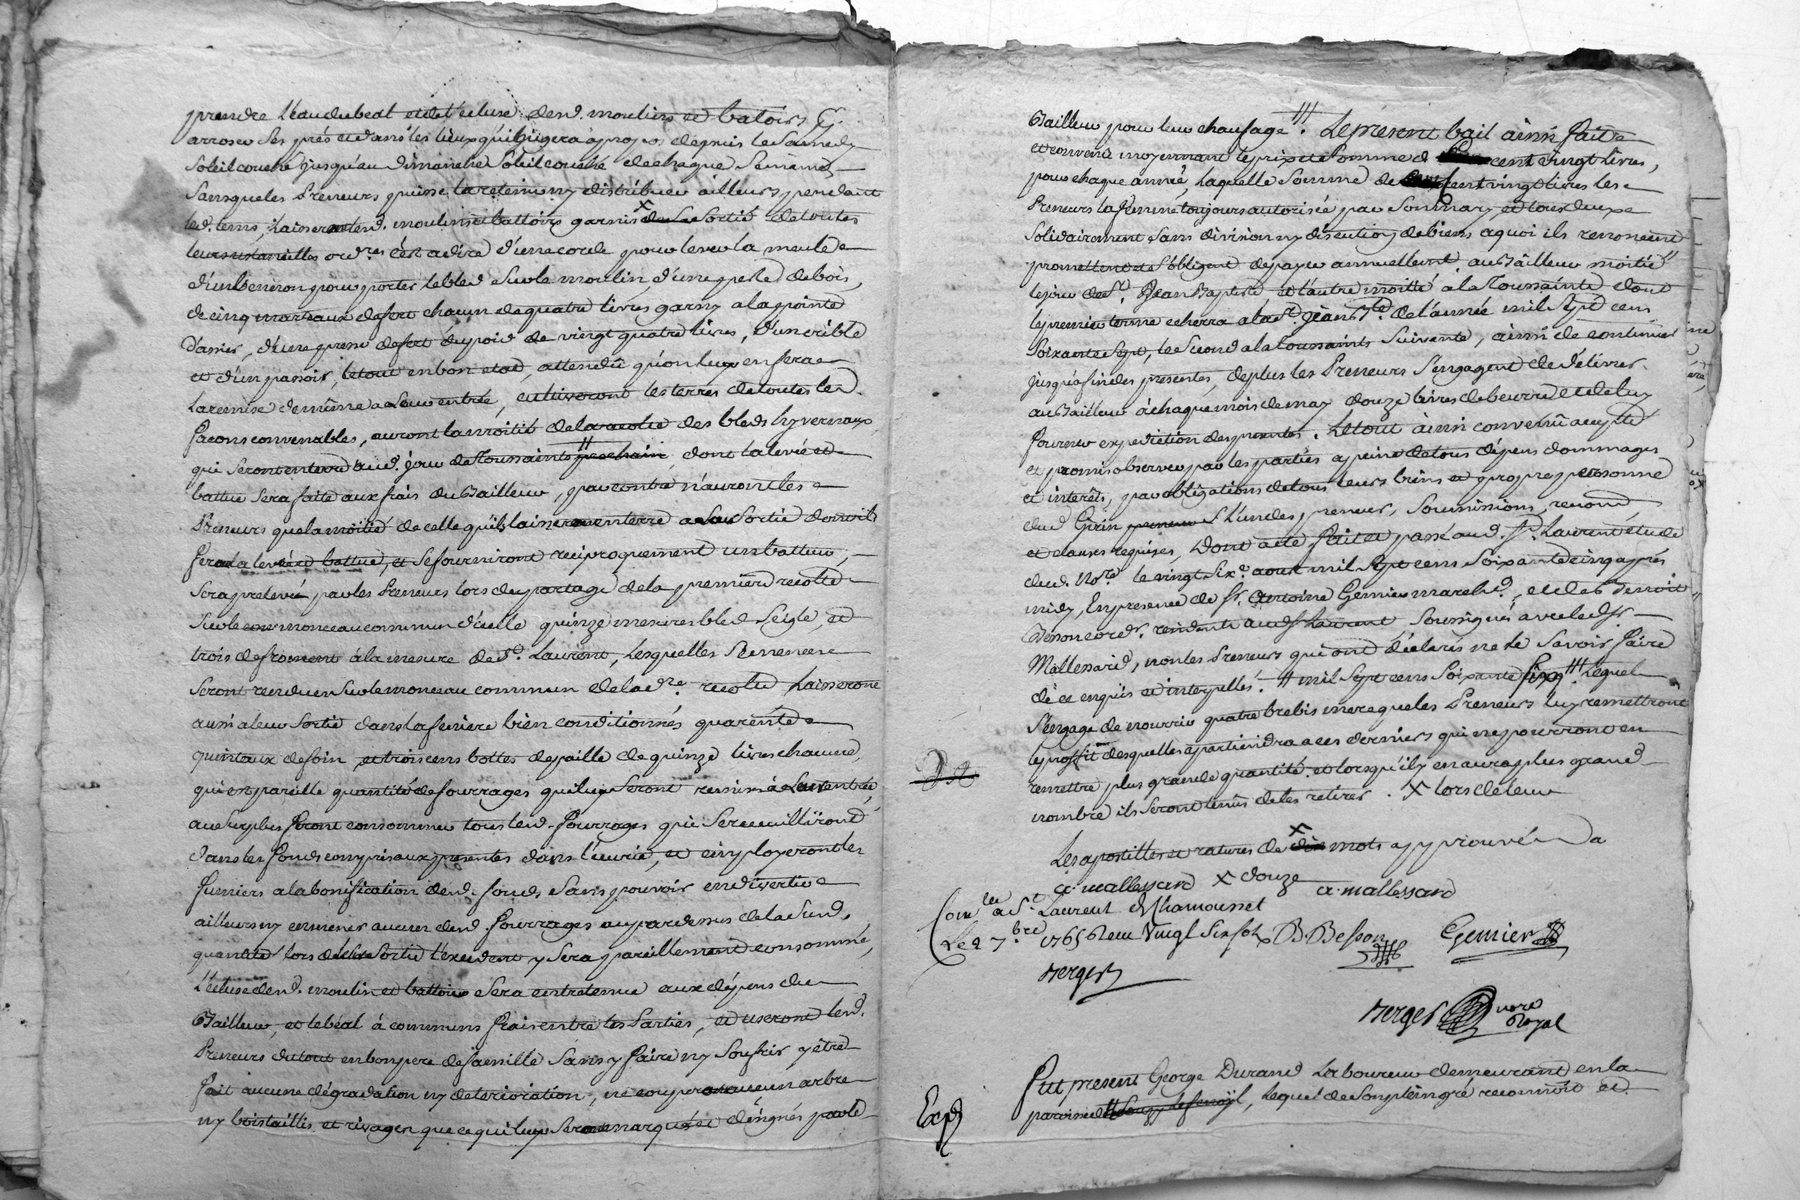 prendre l'eau du beal et de l'ecluse desd. moulins et batoirs
arroser ses prés et dans les lieux qu'il jugera àpropos depuis le samedy
soleil couché jusqu'au dimanche soleil couché de chaque semaine
sans que les Preneurs puisse la retenir ny distribuer ailleurs pendant
led. tems, laisseront lesd. moulins et battoirs garnis X de toutes
leurs ustancilles ord.res c'est adire d'une corde pour lever la meule
d'un benon pour porter le bled sur le moulin d'une pesle de bois,
de cinq marteaux de fert chacun de quatre livres garny a la pointe
d'assier, d'une prene de fert du poid de vingt quatre livres, d'un crible
et d'un passoir, le tout en bon etat, attendû qu'on leur en fera
la remise de même a leur entrée, cultiveront les terres de toutes les
façons convenables, auront la moitié de la recolte des bleds hyvernaux
qui seront enterre aud. jour de Toussaints # prochain, dont la levée et
battue sera faite aux frais du Bailleur, par contre n'auront les
Preneurs que la moitié de celle qu'ils laisseront enterre a leur sortie dont ils
feront la levée et battue, et se fourniront reciproquement un batteur,
sera prelevé par les Preneurs lors du partage de la premiere recolte
sur le monceau commun d'icelle quinze mesures bled seigle, et
trois de froment à la mesure de St. Laurent, lesquelles semence
seront rendues sur le monceau commun de la d.re recolte laisseront
aussi a leur sortie dans la feniere bien conditionnés quarente
quintaux de foin et trois cens bottes de paille de quinze livres chacune,
qui en pareille quantité de fourrages qui leur seront remis à leur entrée,
au surplus feront consommer tous lesd. fourrages qui se recueilliront
dans les fonds compris aux presentes dans l'écurie, et employeront les
fumiers a la bonification desd. fonds sans pouvoir en divertir
ailleurs ny emmener aucun desd. fourrages au par dessus de la susd.
quantité lors de leur sortie l'excedent y sera pareillement consommé,
l'ecluse desd. moulin et battoirs sera entretenue aux dépens du
Bailleur, et le béal à communs frais entre les Parties, et useront lesd.
Preneurs du tout en bon pere de famille sans y faire ny soufrir y être
fait aucune dégradation ny deterioration, ne coupront aucun arbre
ny bois taillis et rivages que ce qui leur sera marqué et désigné par le
Bailleur pour leur chaufage /// . Le present bail ainsi fait
et convenu moyennant le prix et somme de cent vingt livres,
pour chaque année, laquelle somme de cent vingt livres les
Preneurs la femme toujours autorisée par son mary et tous deux
solidairement sans division ny discution de biens a quoi ils renoncent
promettent et s'obligent de payer annuellement au Bailleur moitié
le jour de St. Jean Baptiste et l'autre moitié à la Toussaints dont
le premier terme echerra a la St. Jean Bte. de l'année mil sept cens
soixante sept, le second a la Toussaints suivante, ainsi de continuer
jusqu'a fin des presentes, de plus les Preneurs s'engagent de délivrer
au Bailleur à chaque mois de may douze livres de beurre et de luy
fournir expedition des presentes. Le tout ainsi convenû accepté
et promis observer par les parties a peine de tous dépens dommages
et interêts, par obligations de tous leurs biens et propres personne
dud Girin preneur &
et clauses requises, Dont acte fait et passé aud. St. Laurent étude
dud. No.re le vingt six.e aoust mil sept cens soixante cinq après
midy, En presence de Sr. Antoine Gemier march.d, et de s Benoit
Besson cord.r residents aud St Laurent soussignés avec led Sr
Mallessard, non les Preneurs qui ont déclarés ne le savoir faire
de ce enquis et interpellés. # mil sept cens soixante six /// lequel
s'engage de nourrir quatre brebis meres que les Preneurs luy remettront
le profit desquelles apartiendra a ces derniers qui ne pourront en
remettre plus grande quantité et lorsqu'il y en aura plus grand
nombre ils seront tenus de les retirer. X lors de leur
Les apostilles et ratures de X mots approuvée
a. mallessard X douze a. mallessard
Con.lee a St. Laurent de Chamousset
Le 27bre 1765 Reçu Vingt six sols B Besson Gemier
Berger
Berger no.re Royal
Exp.d
Fut present George Durand Laboureur demeurant en la
paroisse de lequel de son plein gré reconnoit et